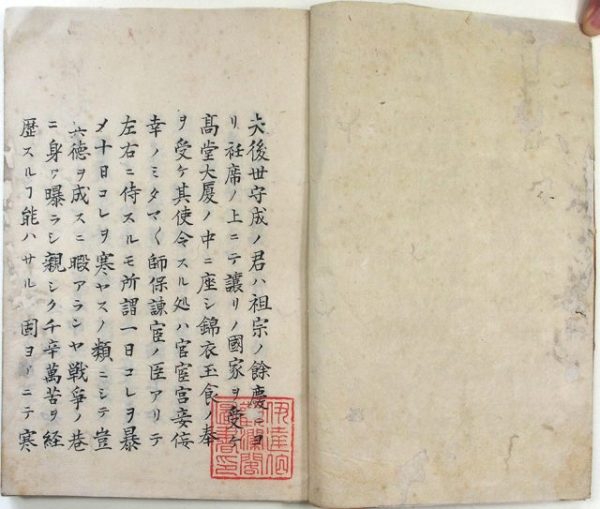 夫後世守成ノ君ハ祖宗ノ餘慶ニヨ
リ衽席ノ上ニテ讓リノ國家ヲ受ケ
髙堂大厦ノ中ニ座シ錦衣玉食ノ奉
ヲ受ケ其使令スル処ハ官宦宮妾侫
幸ノミタマ〱師保諫官ノ臣アリテ
左右ニ侍スルモ所謂一日コレヲ暴
メ十日コレヲ寒ヤスノ類ニシテ豈
其徳ヲ成スニ暇アランヤ戦爭ノ巷
ニ身ヲ曝ラシ親シク千辛萬苦ヲ経
歴スルヿ能ハサルハ固ヨリニテ寒
伊達伯
觀瀾閣
圖書印